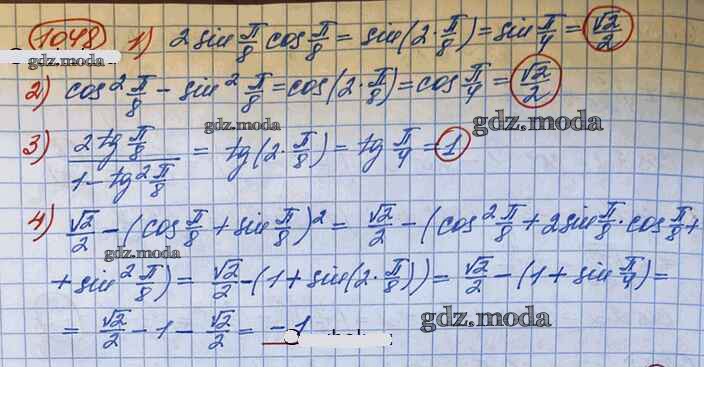 1048 1) 2 sin π/8 cos π/8 = sin(2·π/8) = sin π/4 = √2/2
gdz.moda
2) cos² π/8 - sin² π/8 = cos(2·π/8) = cos π/4 = √2/2
gdz.moda gdz.moda
3) 2 tg π/8 / 1 - tg² π/8 = tg(2·π/8) = tg π/4 = 1
4) √2/2 - (cos π/8 + sin π/8)² = √2/2 - (cos² π/8 + 2 sin π/8 · cos π/8 +
gdz.moda
+ sin² π/8) = √2/2 - (1 + sin(2·π/8)) = √2/2 - (1 + sin π/4) =
= √2/2 - 1 - √2/2 = -1
gdz.moda